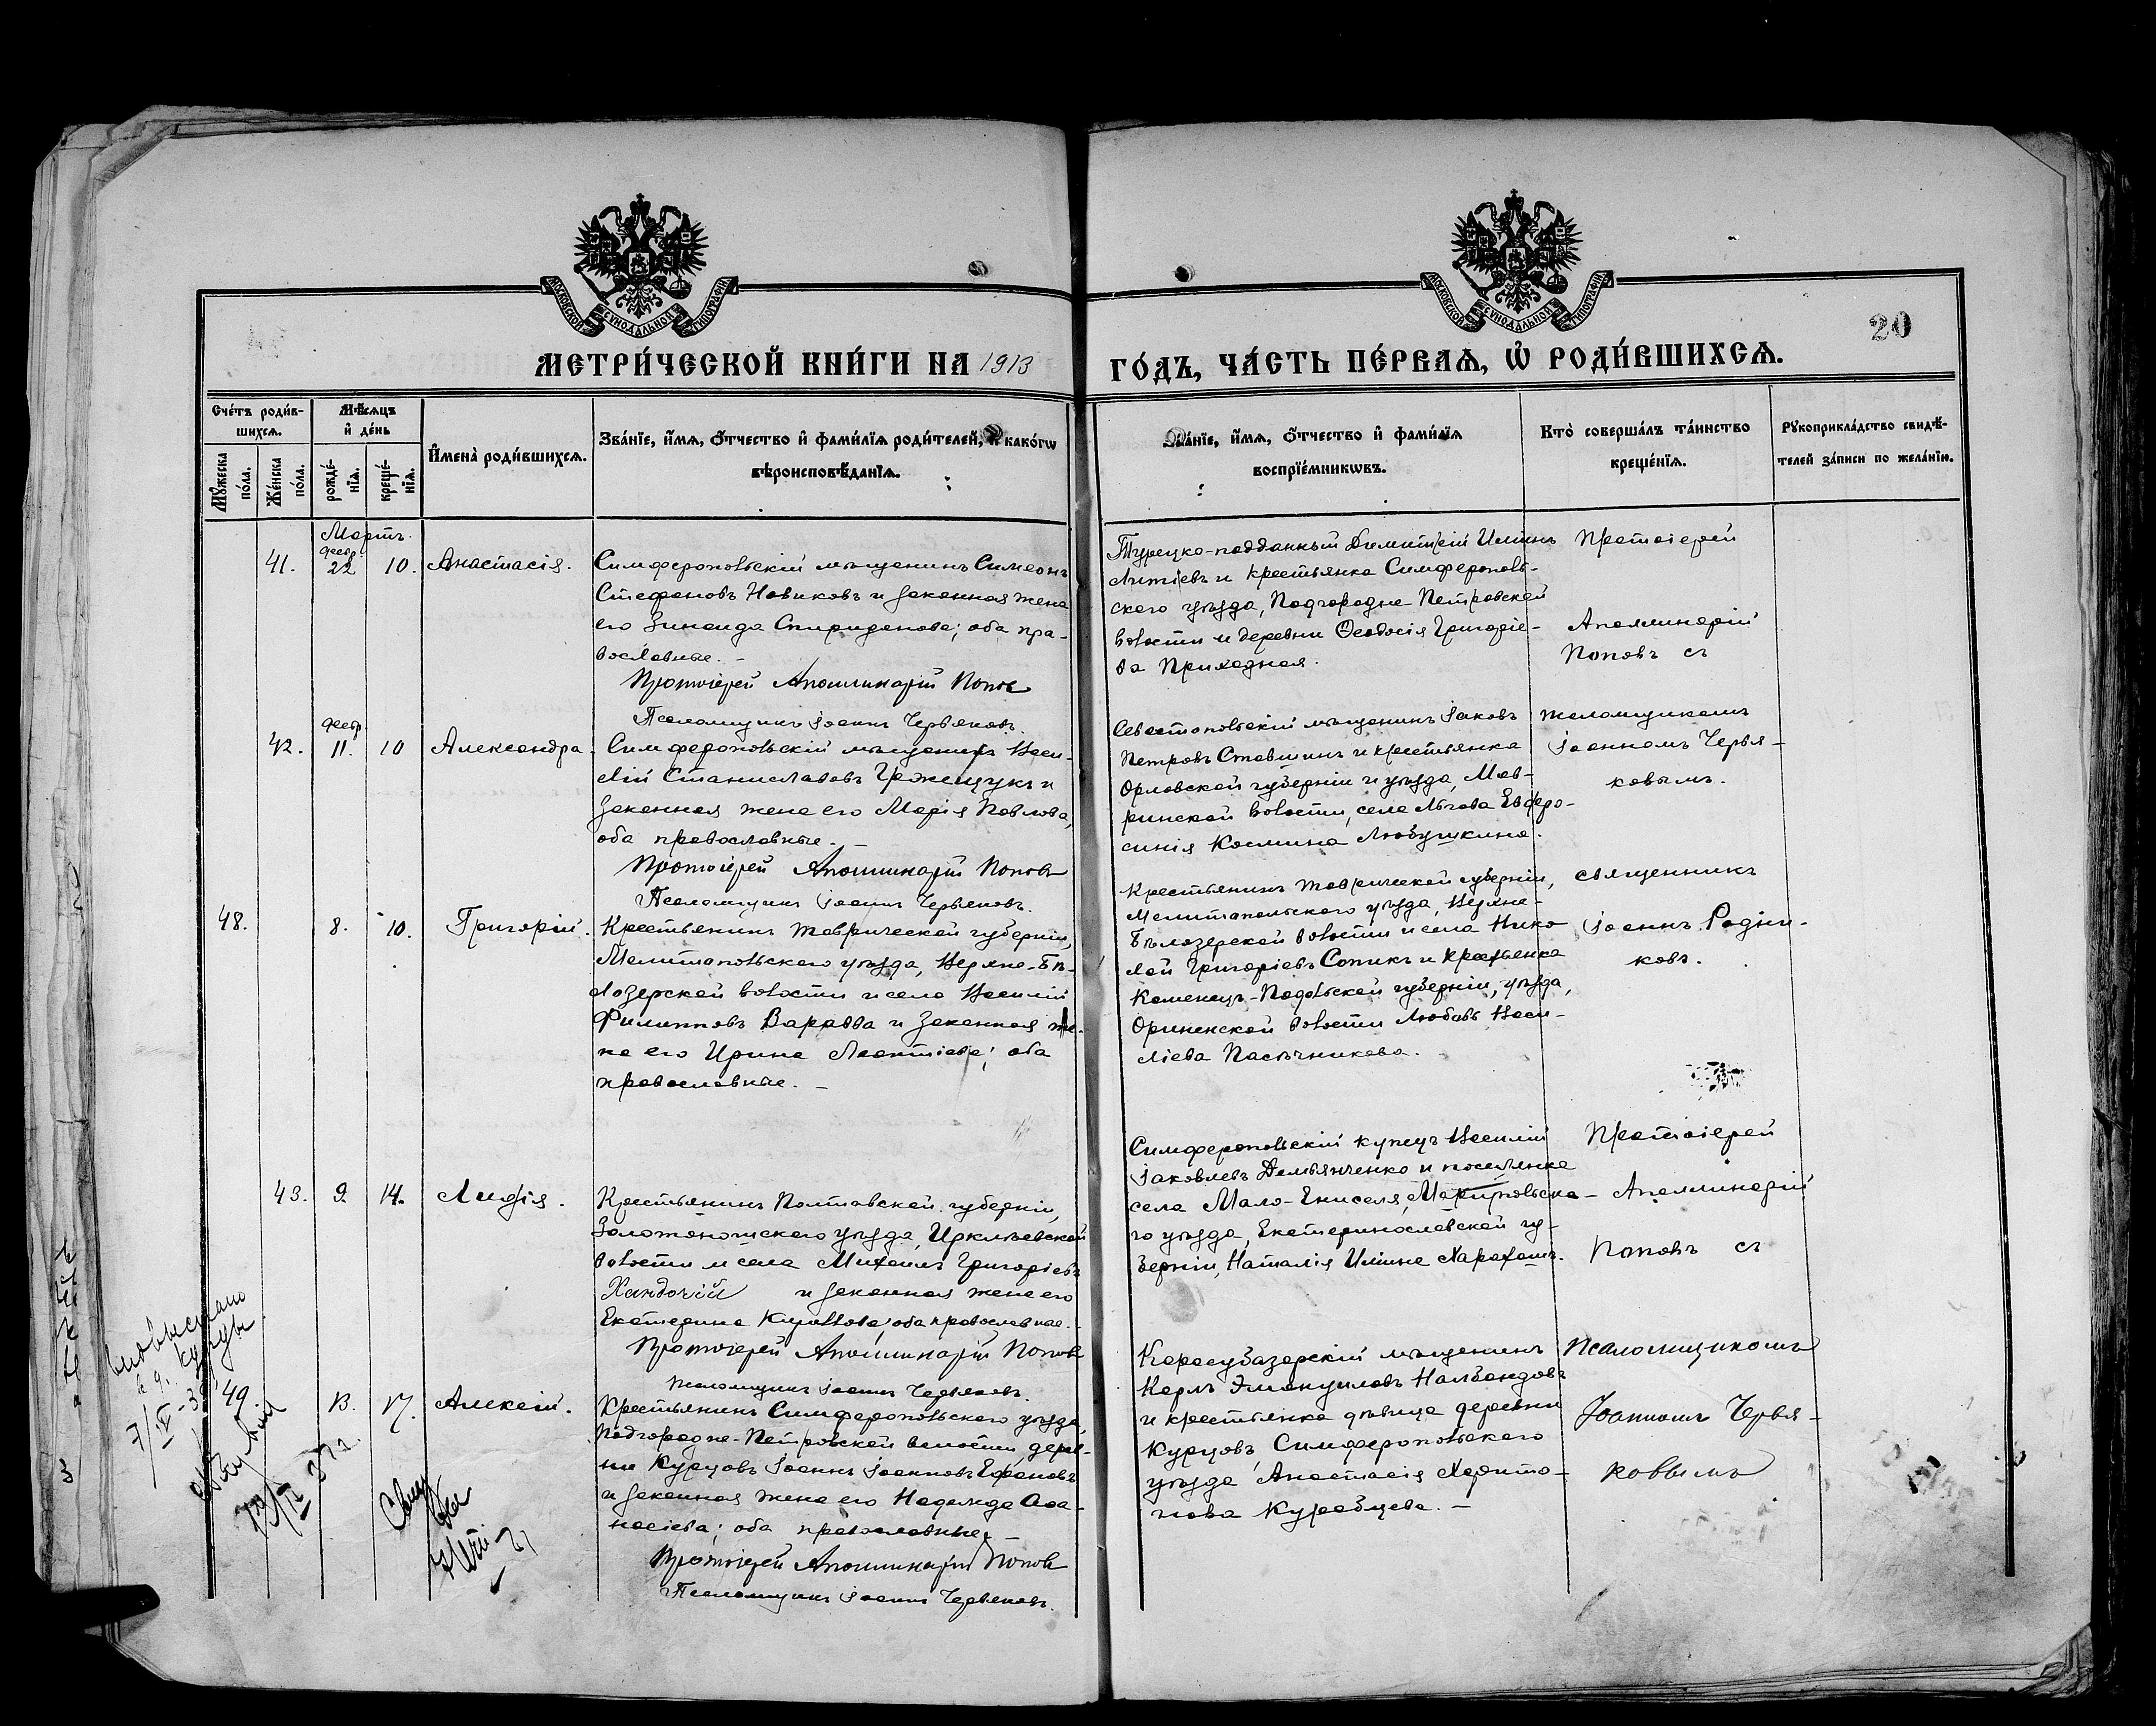 МОСКОВСКОЙ СѴНОДАЛЬНОЙ ТИПОГРАФІИ
МОСКОВСКОЙ СѴНОДАЛЬНОЙ ТИПОГРАФІИ
20
МЕТРИ́ЧЕСКОЙ КНИ́ГИ НА 1913
ГО́ДЪ, ЧА́СТЬ ПЕ́РВАѦ, Ѡ҆ РОДИ́ВШИХСѦ.
Сче́тъ роди́в-
шихсѧ.
Мꙋ́жеска по́ла.
Же́нска по́ла.
Мѣ́сѧцъ
и҆ де́нь
рожде́-
нїѧ.
креще́-
нїѧ.
И҆мена̀ роди́вшихсѧ.
Зва́нїе, и҆́мѧ, ѻ҆́тчество и҆ фами́лїѧ роди́телей, и҆ како́гѡ
вѣроисповѣ́данїѧ.
Зва́нїе, и҆́мѧ, ѻ҆́тчество и҆ фами́лїѧ
воспрїе́мникѡвъ.
Кто̀ соверша́лъ та́инство
креще́нїѧ.
Рꙋкоприкла́дство свидѣ́-
телей за́писи по жела́нїю.
Мартъ.
февр.
41. 22 10. Анастасія.
Симферопольскій мѣщанинъ Симеонъ
Стефановъ Новиковъ и законная жена
его Зинаида Спиридонова; оба пра-
вославные. –
Протоіерей Аполлинарій Попов
Псаломщикъ Іоаннъ Червяковъ.
Турецко-подданный Димитрій Ильинъ
и крестьянка Симферополь-
скаго уѣзда, Подгородне-Петровской
волости и деревни Ѳеодосія Григоріе-
ва Приходная.
Протоіерей
Аполлинарій
Поповъ съ
февр.
42. 11. 10 Александра.
Симферопольскій мѣщанинъ Васи-
лій Станиславовъ и
законная жена его Марія Павлова,
оба православные. –
Протоіерей Аполлинарій Поповъ
Псаломщикъ Іоаннъ Червяковъ.
Севастопольскій мѣщанинъ Іаковъ
Петровъ Ставшинъ и крестьянка
Орловской губерніи и уѣзда, Мов-
ринской волости, села Льгова Евфро-
синія Космина Любушкина.
псаломщикомъ
Іоанномъ Червя-
ковымъ.
48. 8. 10. Григорій.
Крестьянинъ Таврической губерніи,
Мелитопольскаго уѣзда, Верхне-Бѣ-
лозерской волости и села Василій
Филипповъ Варавва и законная же-
на его Ирина Леонтіева; оба
православные. –
Крестьянинъ Таврической губерніи,
Мелитопольскаго уѣзда, Верхне-
Бѣлозерской волости и села Нико-
лай Григоріевъ Сопикъ и крестьянка
Каменецъ-Подольской губерніи, уѣзда,
Орининской волости Любовь Васи-
ліева Пасѣчникова.
священникъ
Іоаннъ Родни-
ковъ.
43. 9. 14. Лидія.
Крестьянинъ Полтавской губерніи,
Золотоношскаго уѣзда, Ирклѣевской
волости и села Михаилъ Григоріевъ
Хандочій и законная жена его
Екатерина Кириллова; оба православные.
Протоіерей Аполлинарій Попов
Псаломщикъ Іоаннъ Червяковъ.
Симферопольскій купецъ Василій
Іаковлевъ Демьянченко и поселянка
села Мало-Енисаля, Маріупольска-
го уѣзда, Екатеринославской гу-
берніи, Наталія Ильина Харахашъ.
Протоіерей
Аполлинарій
Поповъ съ
49. 13. 17. Алексій.
Крестьянинъ Симферопольскаго уѣзда,
Подгородне-Петровской волости, дерев-
ни Курцовъ Іоаннъ Іоанновъ Ефановъ
и законная жена его Надежда Аѳа-
насіева; оба православные. –
Протоіерей Аполлинарій Попов
Псаломщикъ Іоаннъ Червяковъ.
Карасубазарскій мѣщанинъ
Карлъ Эмануиловъ Налбандовъ
и крестьянка дѣвица деревни
Курцовъ, Симферопольскаго
уѣзда Анастасія Харито-
нова Куравцева. –
псаломщикомъ
Іоанномъ Червя-
ковымъ